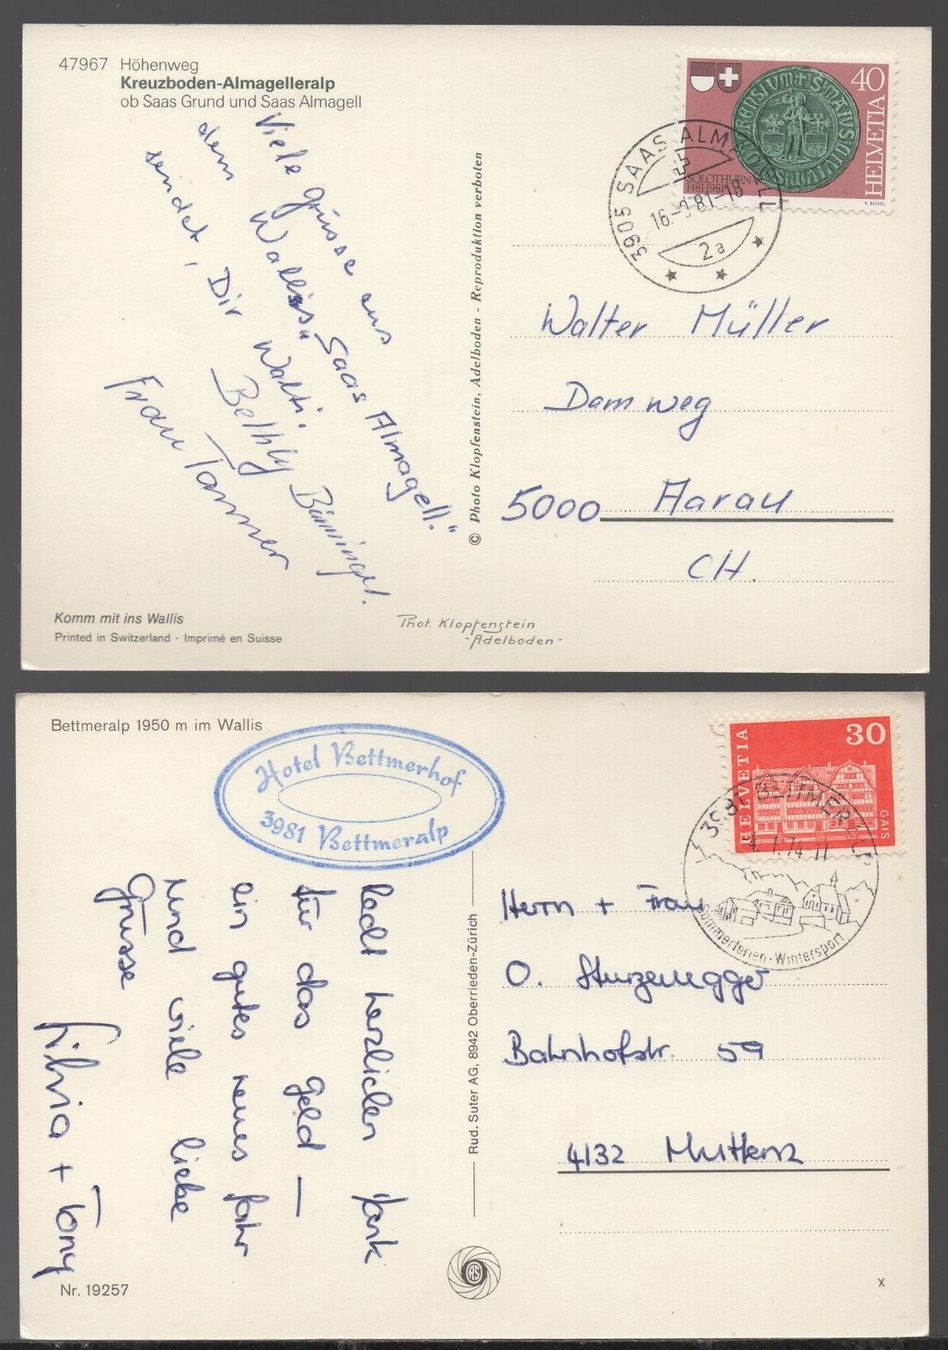 47967 Höhenweg
Kreuzboden-Almagelleralp
ob Saas Grund und Saas Almagell
Viele Grüsse aus
dem Wallis „Saas Almagell."
sendet, Dir Walti.
Bethly Bänninger.
Frau Tanner
Komm mit ins Wallis
Printed in Switzerland - Imprimé en Suisse
© Photo Klopfenstein, Adelboden - Reproduktion verboten
Phot. Klopfenstein
- Adelboden -
40
HELVETIA
SOLOTHURN
1481-1981
3905 SAAS ALMAGELL
16.-9.81-18
2a
Walter Müller
Damweg
5000 Aarau
CH.
Bettmeralp 1950 m im Wallis
Hotel Bettmerhof
3981 Bettmeralp
Recht herzlichen Dank
für das Geld —
ein gutes neues Jahr
und viele liebe
Grüsse
Silvia + Tony
Nr. 19257
Rud. Suter AG, 8942 Oberrieden-Zürich
RS
30
HELVETIA
GAIS
3981 BETTMERALP
4. 1. 74-11
Sommerferien - Wintersport
Herrn + Frau
O. Sturzenegger
Bahnhofstr. 59
4132 Muttenz
x